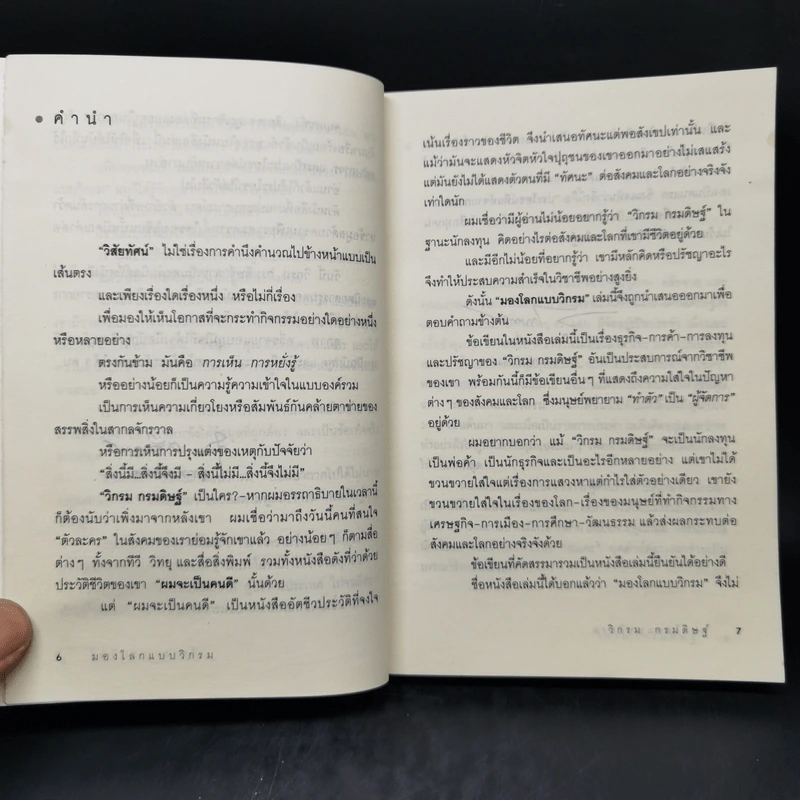 คำนำ
"วิสัยทัศน์" ไม่ใช่เรื่องการคำนึงคำนวณไปข้างหน้าแบบเป็น
เส้นตรง
และเพียงเรื่องใดเรื่องหนึ่ง หรือไม่กี่เรื่อง
เพื่อมองให้เห็นโอกาสที่จะกระทำกิจกรรมอย่างใดอย่างหนึ่ง
หรือหลายอย่าง
ตรงกันข้าม มันคือ การเห็น การหยั่งรู้
หรืออย่างน้อยก็เป็นความรู้ความเข้าใจในแบบองค์รวม
เป็นการเห็นความเกี่ยวโยงหรือสัมพันธ์กันคล้ายตาข่ายของ
สรรพสิ่งในสากลจักรวาล
หรือการเห็นการปรุงแต่งของเหตุกับปัจจัยว่า
"สิ่งนี้มี...สิ่งนี้จึงมี – สิ่งนี้ไม่มี...สิ่งนี้จึงไม่มี"
"วิกรม กรมดิษฐ์" เป็นใคร?-หากผมอรรถาธิบายในเวลานี้
ก็ต้องนับว่าเพิ่งมาจากหลังเขา ผมเชื่อว่ามาถึงวันนี้คนที่สนใจ
"ตัวละคร" ในสังคมของเราย่อมรู้จักเขาแล้ว อย่างน้อยๆ ก็ตามสื่อ
ต่างๆ ทั้งจากทีวี วิทยุ และสื่อสิ่งพิมพ์ รวมทั้งหนังสือดังที่ว่าด้วย
ประวัติชีวิตของเขา "ผมจะเป็นคนดี" นั้นด้วย
แต่ "ผมจะเป็นคนดี" เป็นหนังสืออัตชีวประวัติที่จงใจ
6 มองโลกแบบวิกรม
เน้นเรื่องราวของชีวิต จึงนำเสนอทัศนะแต่พอสังเขปเท่านั้น และ
แม้ว่ามันจะแสดงหัวจิตหัวใจปุถุชนของเขาออกมาอย่างไม่เสแสร้ง
แต่มันยังไม่ได้แสดงตัวตนที่มี "ทัศนะ" ต่อสังคมและโลกอย่างจริงจัง
เท่าใดนัก
ผมเชื่อว่ามีผู้อ่านไม่น้อยอยากรู้ว่า "วิกรม กรมดิษฐ์" ใน
ฐานะนักลงทุน คิดอย่างไรต่อสังคมและโลกที่เขามีชีวิตอยู่ด้วย
และมีอีกไม่น้อยที่อยากรู้ว่า เขามีหลักคิดหรือปรัชญาอะไร
จึงทำให้ประสบความสำเร็จในวิชาชีพอย่างสูงยิ่ง
ดังนั้น "มองโลกแบบวิกรม" เล่มนี้จึงถูกนำเสนอออกมาเพื่อ
ตอบคำถามข้างต้น
ข้อเขียนในหนังสือเล่มนี้เป็นเรื่องธุรกิจ-การค้า-การลงทุน
และปรัชญาของ "วิกรม กรมดิษฐ์" อันเป็นประสบการณ์จากวิชาชีพ
ของเขา พร้อมกันนี้ก็มีข้อเขียนอื่นๆ ที่แสดงถึงความใส่ใจในปัญหา
ต่างๆ ของสังคมและโลก ซึ่งมนุษย์พยายาม "ทำตัว" เป็น "ผู้จัดการ"
อยู่ด้วย
ผมอยากบอกว่า แม้ "วิกรม กรมดิษฐ์" จะเป็นนักลงทุน
เป็นพ่อค้า เป็นนักธุรกิจและเป็นอะไรอีกหลายอย่าง แต่เขาไม่ได้
ขวนขวายใส่ใจแต่เรื่องการแสวงหาแต่กำไรใส่ตัวอย่างเดียว เขายัง
ขวนขวายใส่ใจในเรื่องของโลก-เรื่องของมนุษย์ที่ทำกิจกรรมทาง
เศรษฐกิจ-การเมือง-การศึกษา-วัฒนธรรม แล้วส่งผลกระทบต่อ
สังคมและโลกอย่างจริงจังด้วย
ข้อเขียนที่คัดสรรมารวมเป็นหนังสือเล่มนี้ยืนยันได้อย่างดี
ชื่อหนังสือเล่มนี้ได้บอกแล้วว่า "มองโลกแบบวิกรม" จึงไม่
วิกรม กรมดิษฐ์ 7